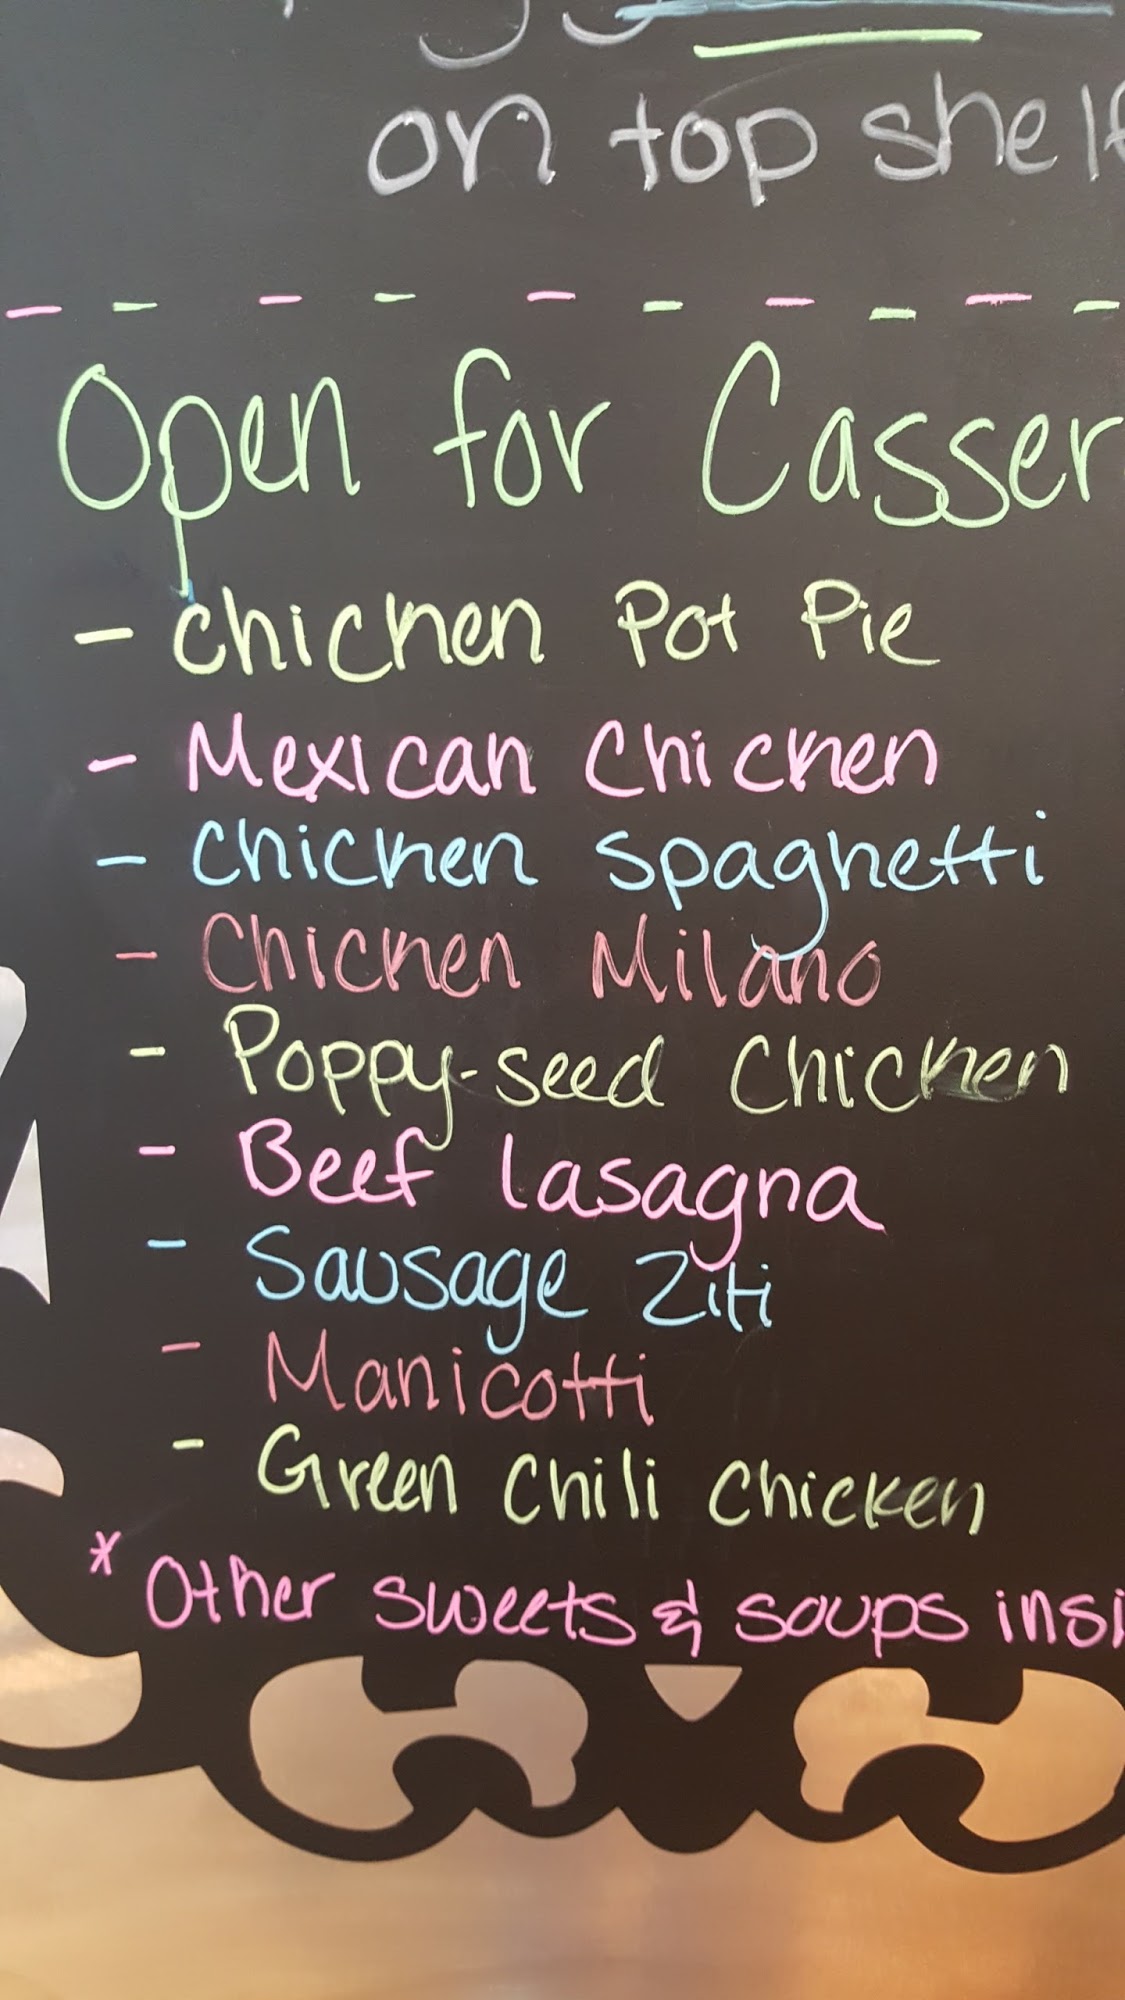 on top shelf
Open for Casser
- Chicken Pot Pie
- Mexican Chicken
- Chicken Spaghetti
- Chicken Milano
- Poppy-seed Chicken
- Beef Lasagna
- Sausage Ziti
- Manicotti
- Green Chili Chicken
* Other sweets & soups insi